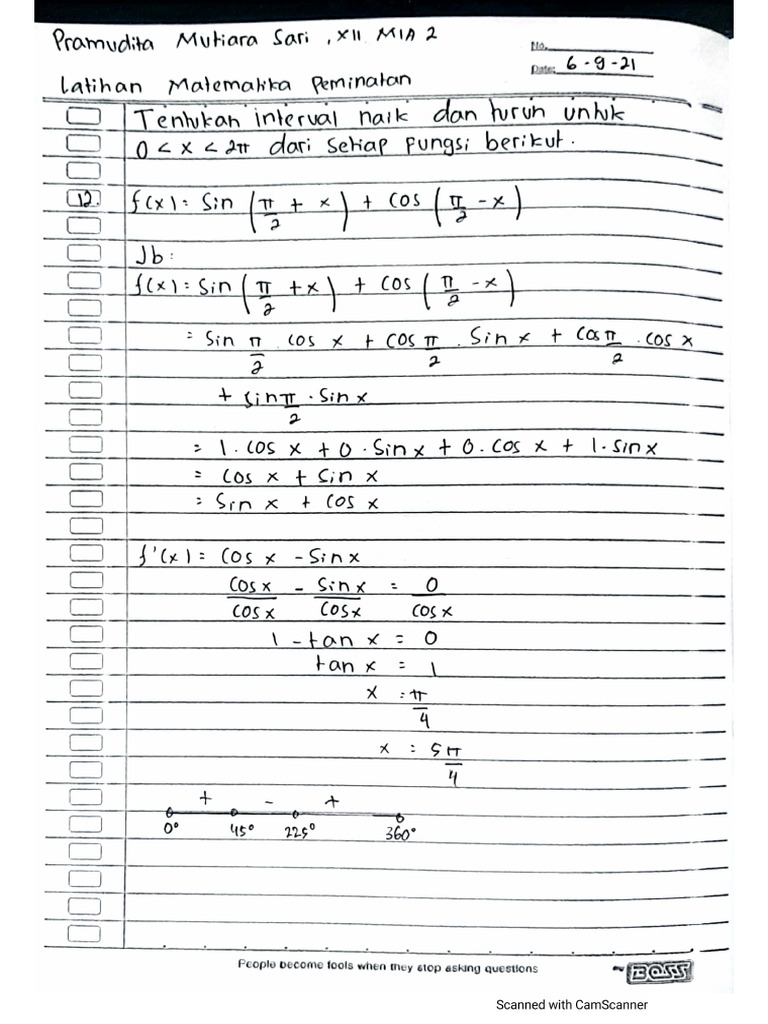 Pramudita Mutiara Sari, XII MIA 2
No.
Date: 6-9-21
Latihan Matematika Peminatan
Tentukan interval naik dan turun untuk
0 < x < 2π dari setiap fungsi berikut.
12. f(x) = Sin (π/2 + x) + cos (π/2 - x)
Jb:
f(x) = Sin (π/2 + x) + cos (π/2 - x)
= Sin π/2 . cos x + cos π/2 . Sin x + cos π/2 . cos x
+ sin π/2 . Sin x
= 1. cos x + 0 . Sin x + 0. cos x + 1. sin x
= cos x + sin x
= Sin x + cos x
f'(x) = cos x - Sin x
cos x/cos x - Sin x/cos x = 0/cos x
1 - tan x = 0
tan x = 1
x = π/4
x = 5π/4
+ - +
0° 45° 225° 360°
People become fools when they stop asking questions
BOSS
Scanned with CamScanner